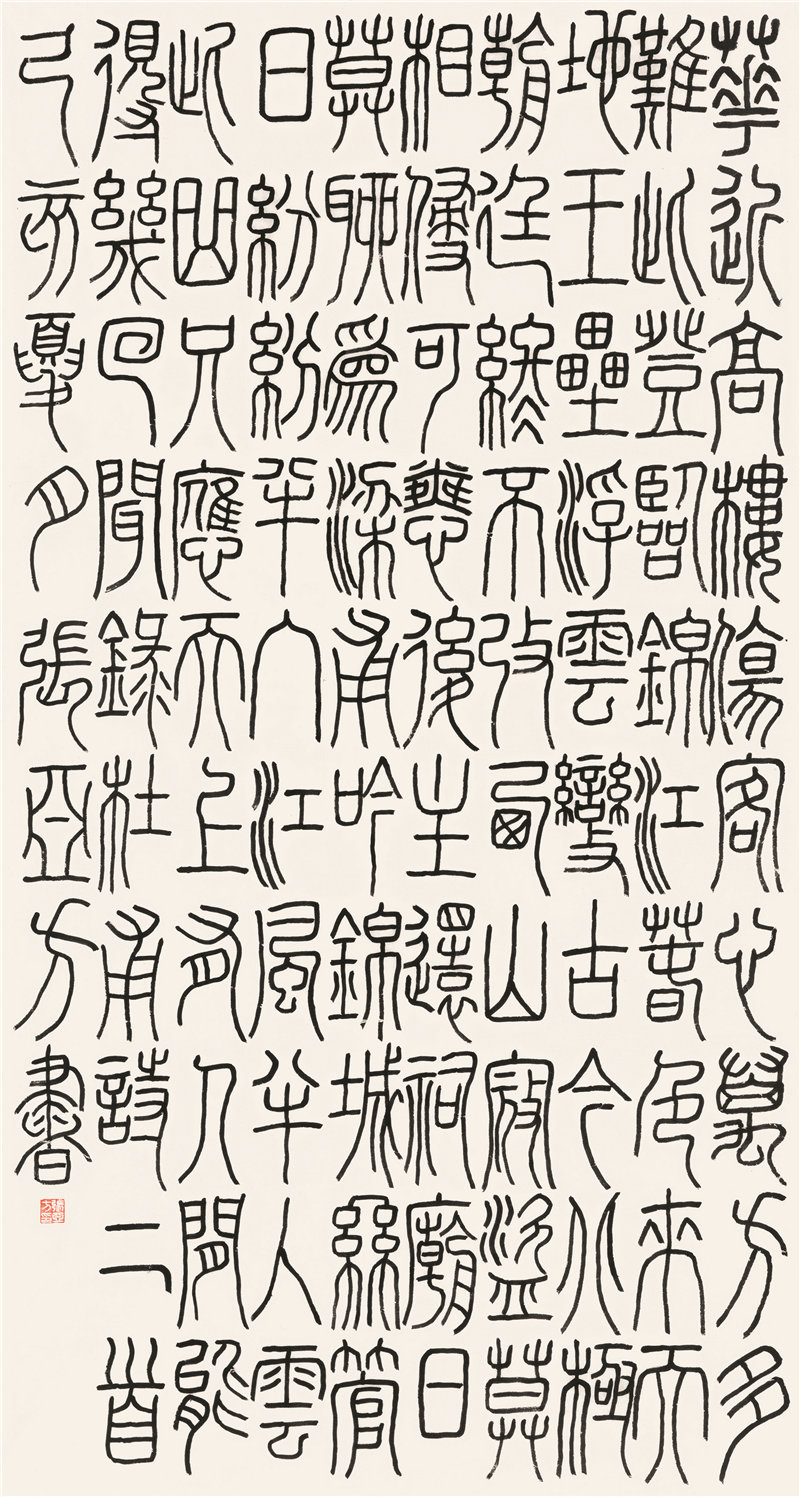 華近高樓傷客心萬方多
難此登臨錦江春色來天
地玉壘浮雲變古今北極
朝廷終不改西山寇盜莫
相侵可憐後主還祠廟日
莫聊為梁甫吟錦城絲管
日紛紛半入江風半入雲
此曲只應天上有人間能
得幾回聞錄杜甫詩二首
己亥夏月張亞方書